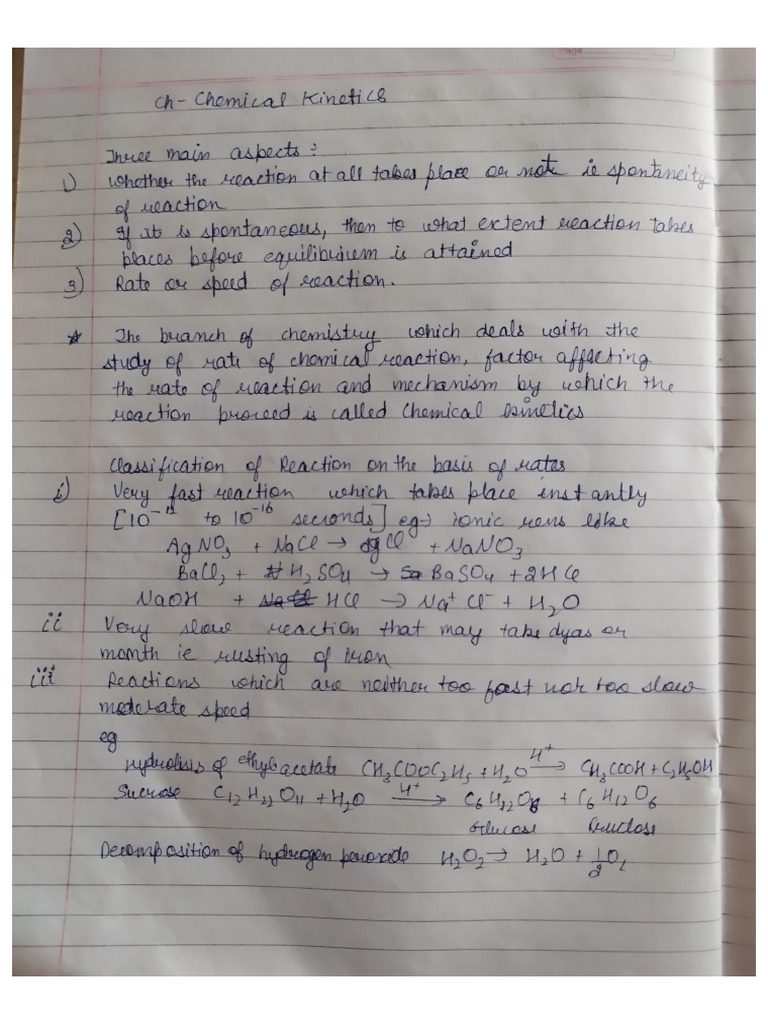 Page
Ch- Chemical Kinetics
Three main aspects :
1) Whether the reaction at all takes place or not ie spontaneity
of reaction
2) If it is spontaneous, then to what extent reaction takes
places before equilibrium is attained
3) Rate or speed of reaction.
* The branch of chemistry which deals with the
study of rate of chemical reaction, factor affecting
the rate of reaction and mechanism by which the
reaction proceed is called Chemical kinetics
Classification of Reaction on the basis of rates
i) Very fast reaction which takes place instantly
[10⁻¹² to 10⁻¹⁶ seconds] eg→ ionic rxns like
AgNO₃ + NaCl → AgCl + NaNO₃
BaCl₂ + H₂SO₄ → BaSO₄ + 2HCl
NaOH + HCl → Na⁺ Cl⁻ + H₂O
ii Very slow reaction that may take dyas or
month ie rusting of iron
iii Reactions which are neither too fast nor too slow
moderate speed
eg
Hydrolisis of ethyl acetate CH₃COOC₂H₅ + H₂O H⁺→ CH₃COOH + C₂H₅OH
Sucrose C₁₂H₂₂O₁₁ + H₂O H⁺→ C₆H₁₂O₆ + C₆H₁₂O₆
Glucose Fructose
Decomposition of hydrogen peroxide H₂O₂ → H₂O + 1/2 O₂